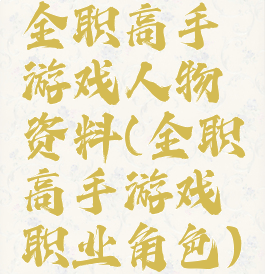 全职高手
游戏人物
资料(全职
高手游戏
职业角色)